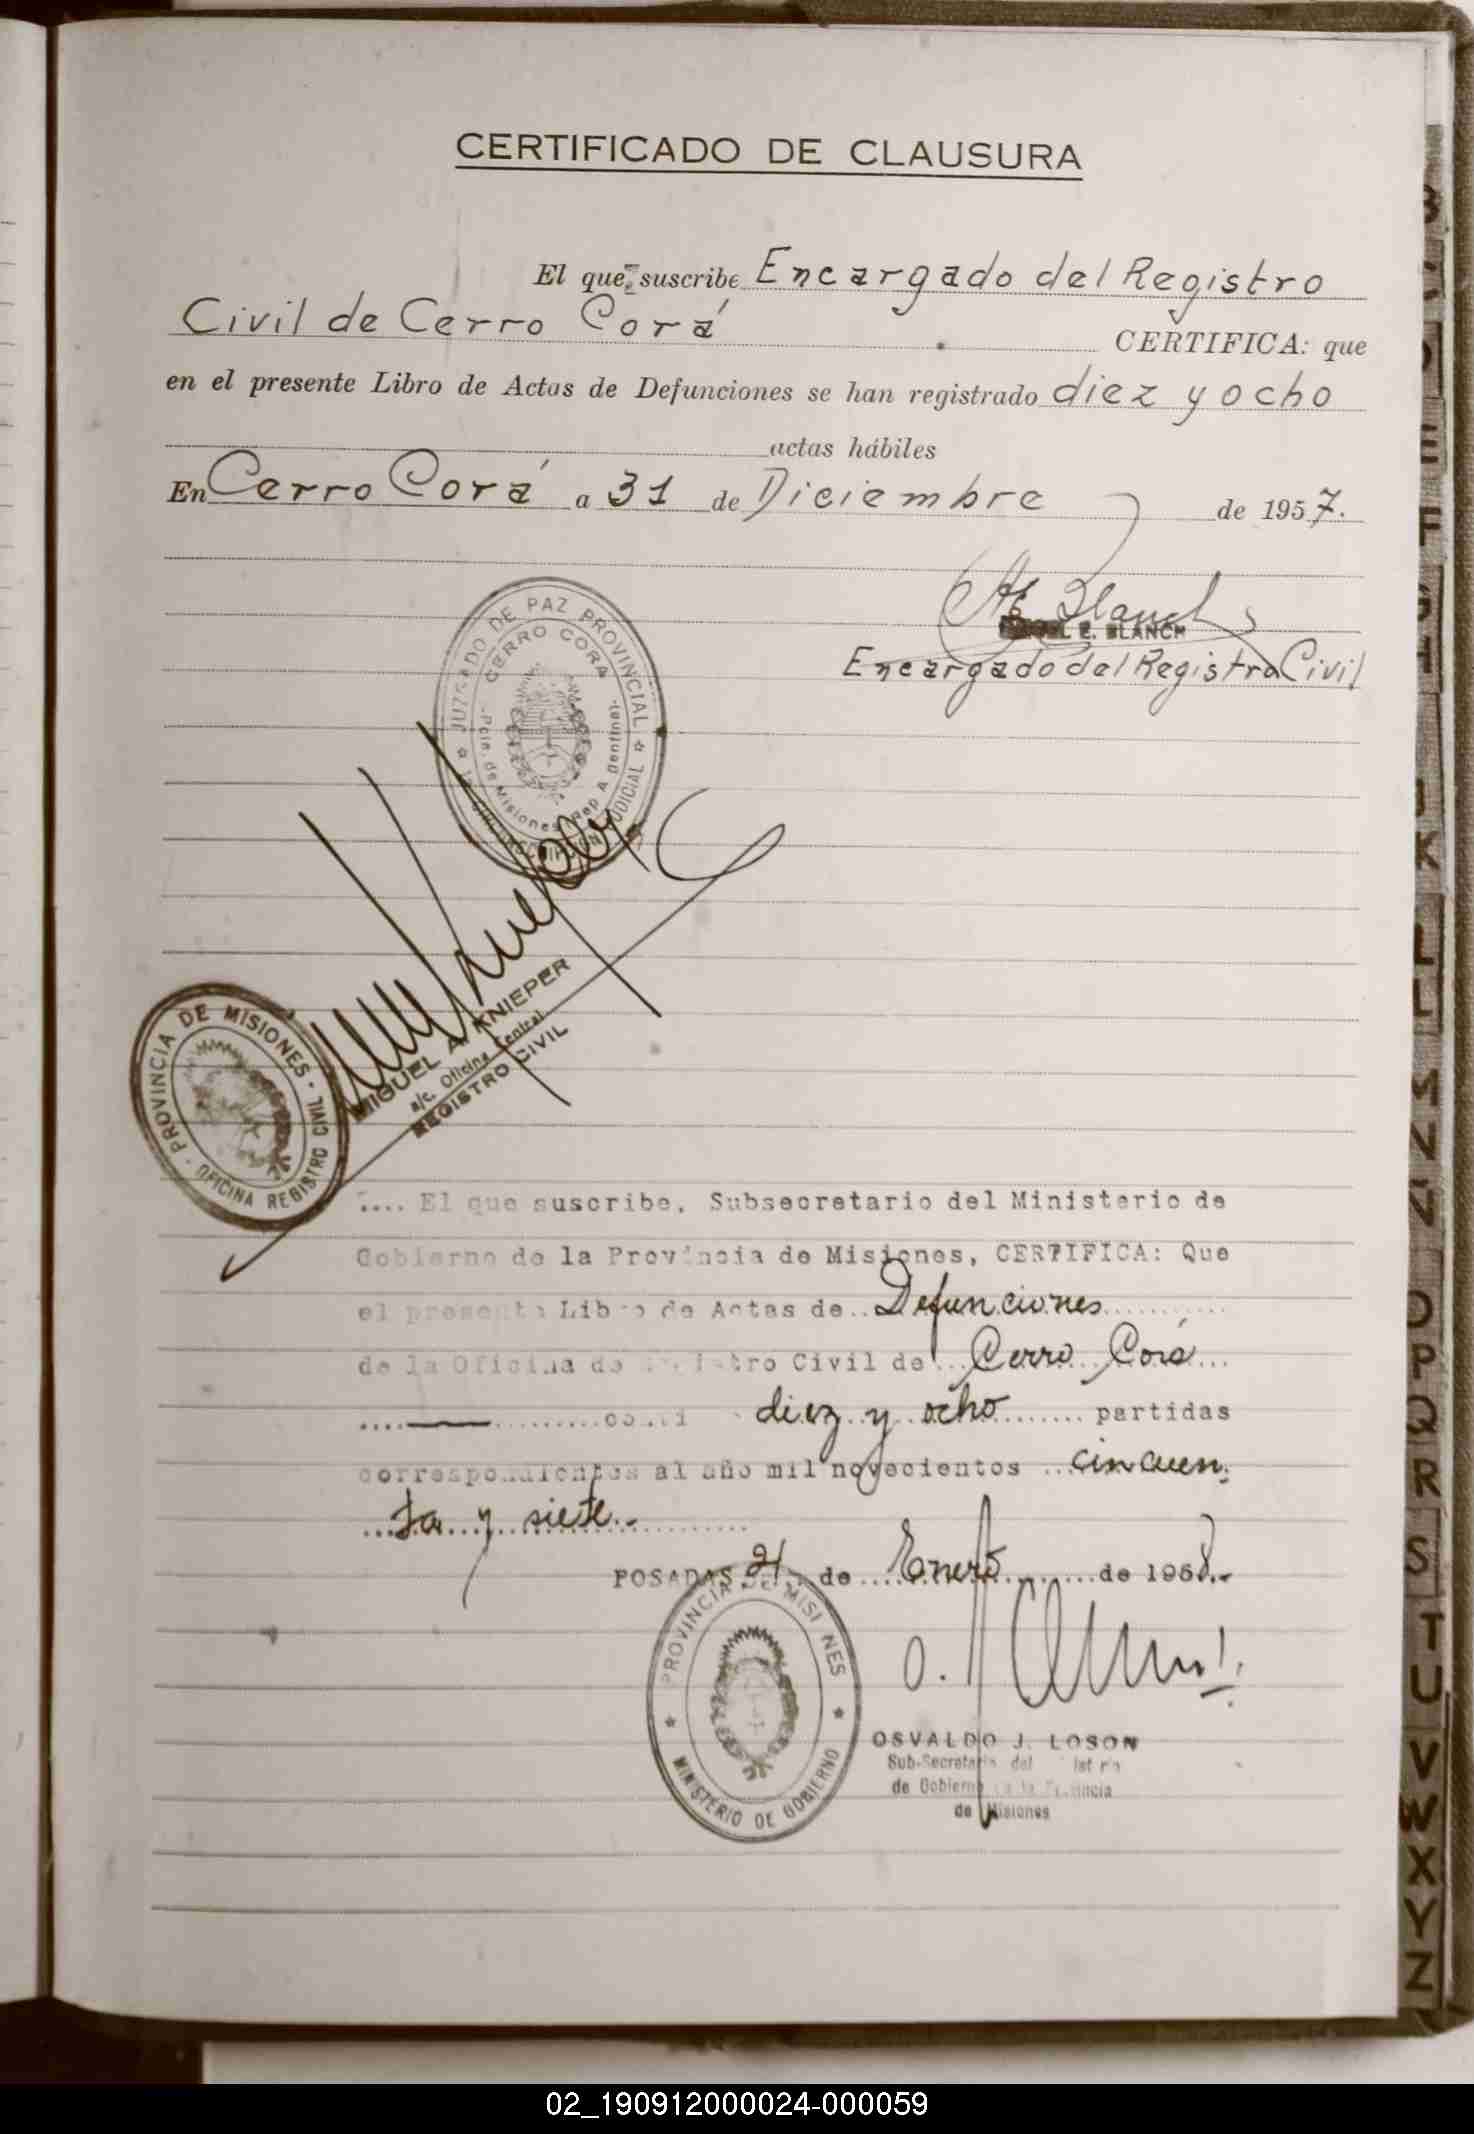 CERTIFICADO DE CLAUSURA
El que suscribe Encargado del Registro
Civil de Cerro Corá CERTIFICA: que
en el presente Libro de Actas de Defunciones se han registrado diez y ocho
actas hábiles
En Cerro Corá a 31 de Diciembre de 1957.
JUZGADO DE PAZ PROVINCIAL
CERRO CORA
Pcia. de Misiones Rep Argentina
CIRCUNSCRIPCION JUDICIAL
Blanch
E. BLANCH
Encargado del Registro Civil
PROVINCIA DE MISIONES
OFICINA REGISTRO CIVIL
MIGUEL A. KNIEPER
a/c. Oficina Central
REGISTRO CIVIL
.... El que suscribe, Subsecretario del Ministerio de
Gobierno de la Provincia de Misiones, CERTIFICA: Que
el presente Libro de Actas de Defunciones
de la Oficina de Civil de Cerro Corá
diez y ocho partidas
correspondientes al año mil novecientos cincuen
ta y siete.-
POSADAS 21 de Enero de 1958.-
PROVINCIA DE MISIONES
MINISTERIO DE GOBIERNO
OSVALDO J. LOSON
Sub-Secretario del
de Gobierno de la Provincia
de Misiones
B
E
F
K
L
M
N
Ñ
O
P
Q
R
S
T
U
V
W
X
Y
Z
02_190912000024-000059